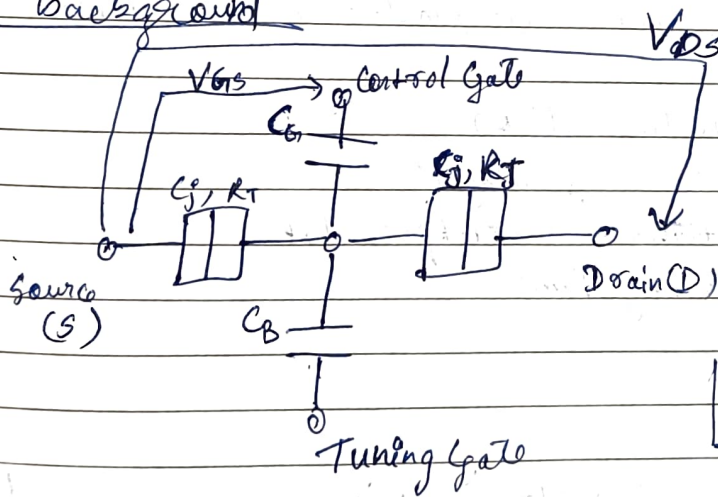 Background
VDS
VGS
Control Gate
CG
Cj, RT
Cj, RJ
Source
(S)
Drain(D)
CB
Tuning Gate